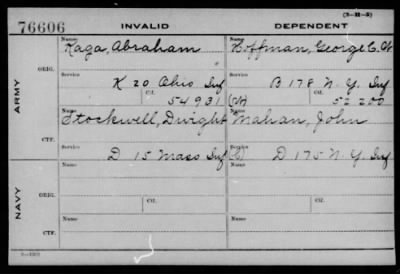 (3-21-5)
76606 INVALID DEPENDENT
Name Name
Kaga, Abraham Hoffman, George C.
ORIG.
Service Service
K 20 Ohio Inf B 178 N.Y. Inf
Ctf. Ctf.
54931 52200
ARMY
Name Name
Stockwell, Dwight Mahan, John
CTF.
Service Service
D 15 Mass Inf D 175 N.Y. Inf
Name Name
ORIG.
Service Service
Ctf. Ctf.
NAVY
Name Name
CTF.